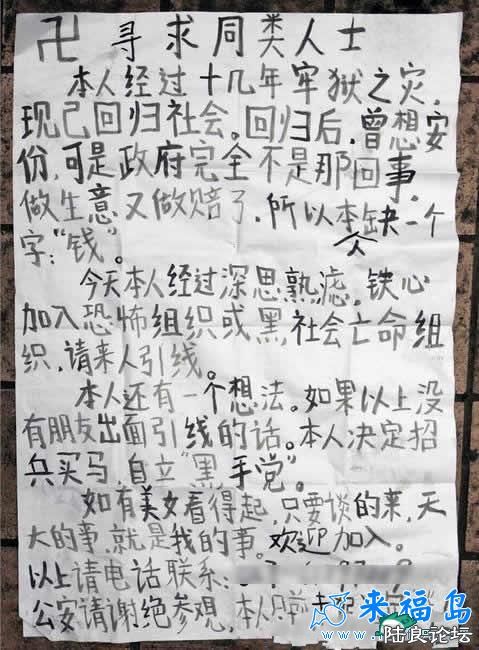 卍 寻求同类人士
本人经过十几年牢狱之灾,
现已回归社会。回归后,曾想安
份,可是政府完全不是那回事。
做生意又做赔了,所以本人缺一个
字:“钱”。
今天本人经过深思熟滤,铁心
加入恐怖组织或黑社会亡命组
织,请来人引线。
本人还有一个想法。如果以上没
有朋友出面引线的话。本人决定招
兵买马,自立“黑手党”。
如有美女看得起,只要谈的来,天
大的事,就是我的事。欢迎加入。
以上请电话联系:
公安请谢绝参观,本人
来福岛
陆良论坛